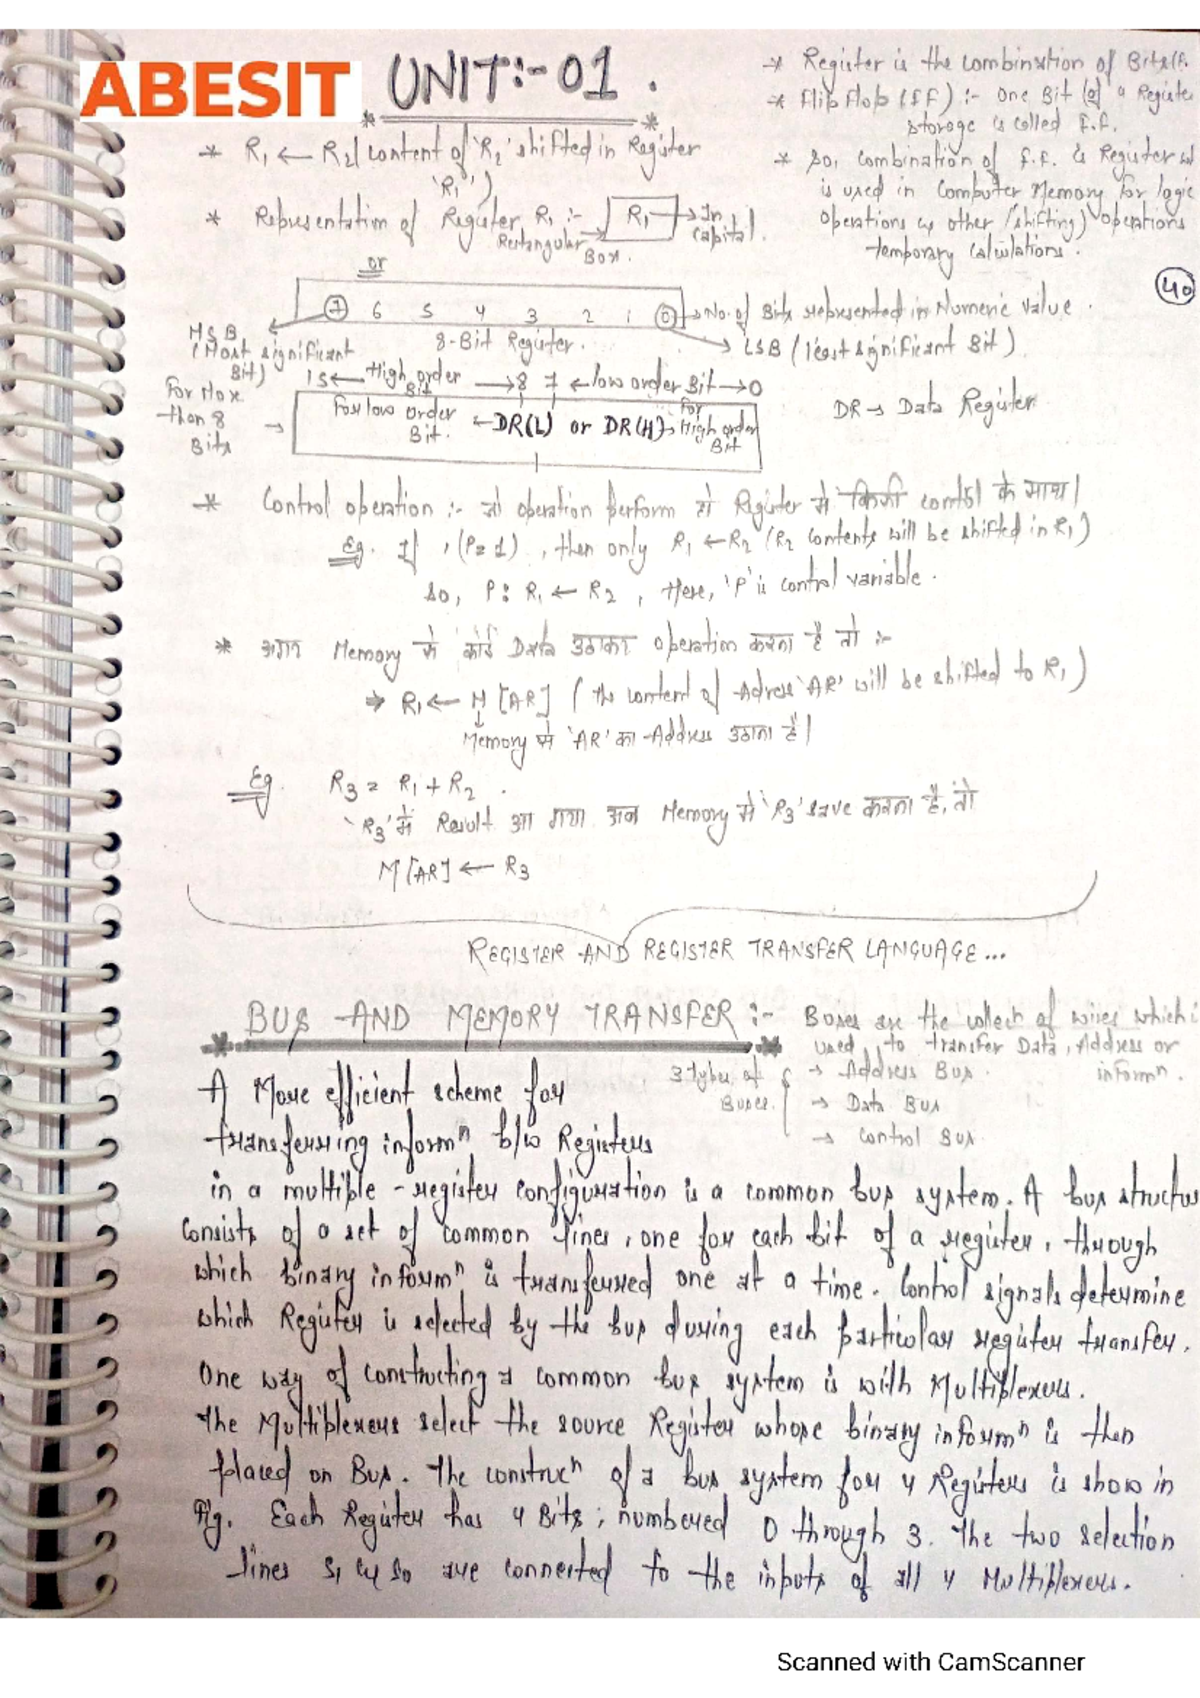 ABESIT UNIT:-01.
* Register is the combination of Bits/F.
* Flip Flop (F.F) :- One Bit of a Register
storage is called F.F.
* So, combination of F.F. is Register
is used in Computer Memory for logic
operations & other (shifting) operations
temporary calculations.
* R1 ← R2 ( content of 'R2' shifted in Register
'R1' )
* Representation of Register R1 :- R1 → In Capital.
Rectangular Box.
or
40
7 6 5 4 3 2 1 0 → No. of Bits represented in Numeric Value.
MSB (Most significant Bit)
8-Bit Register.
LSB (least significant Bit)
15 ← High order Bit → 8 7 ← low order Bit → 0
For more than 8 Bits →
For low order Bit. ← DR(L) or DR(H) → For High order Bit
DR → Data Register
* Control operation :- जो operation perform हो Register में किसी control के साथ।
Eg. If, (P=1), then only R1 ← R2 (R2 contents will be shifted in R1)
so, P: R1 ← R2, Here, 'P' is control variable.
* अगर Memory से कोई Data उठाकर operation करना है तो :-
⇒ R1 ← M [AR] ( the content of Adress 'AR' will be shifted to R1 )
Memory से 'AR' का Address उठाना है।
Eg. R3 = R1 + R2.
'R3' में Result आ गया अब Memory में 'R3' save करना है, तो
M[AR] ← R3
REGISTER AND REGISTER TRANSFER LANGUAGE...
BUS AND MEMORY TRANSFER :-
Buses are the collecn of wires which
used to transfer Data, Address or
informn.
3 types of Buses.
→ Address Bus.
→ Data Bus
→ Control Bus.
A More efficient scheme for
transferring informn b/w Registers
in a multiple - register configuration is a common bus system. A bus structure
consists of a set of common lines, one for each bit of a register, through
which binary informn is transferred one at a time. Control signals determine
which Register is selected by the bus during each particular register transfer.
One way of constructing a common bus system is with Multiplexers.
The Multiplexers select the source Register whose binary informn is then
placed on Bus. The construcn of a bus system for 4 Registers is show in
Fig. Each Register has 4 Bits; numbered 0 through 3. The two selection
lines S1 & S0 are connected to the inputs of all 4 Multiplexers.
Scanned with CamScanner